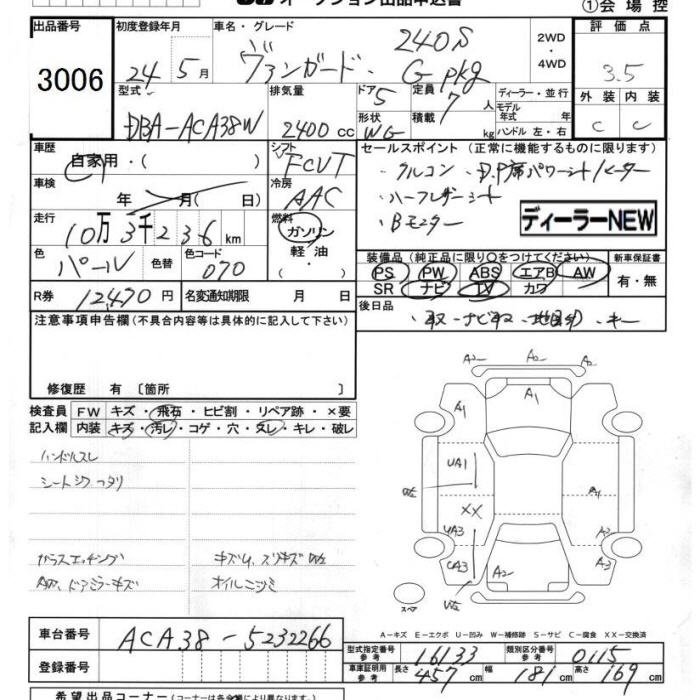 オークション出品申込書
①会場控
出品番号 3006
初度登録年月 24年 5月
車名・グレード ヴァンガード 240S G pkg
2WD ・ 4WD
評価点 3.5
外装 C 内装 C
型式 DBA-ACA38W
排気量 2400 cc
ドア 5
形状 WG
定員 7 人
積載 kg
ディーラー・並行
モデル年式 年
ハンドル 左・右
車歴 自家用・( )
シフト FCVT
セールスポイント (正常に機能するものに限ります)
・クルコン ・D,P席パワーシート/ヒーター
・ハーフレザーシート
・Bモニター
ディーラーNEW
車検 年 月( 日)
冷房 AAC
走行 10万3千236 km
燃料 ガソリン 軽油 ・( )
色 パール 色替 色コード 070
装備品 (純正品に限り○をつけてください)
PS PW ABS エアB AW
SR ナビ TV カワ
新車保証書 有・無
R券 12,470 円
名変通知期限 月 日
後日品 取・ナビ取・地図 ・キー
注意事項申告欄 (不具合内容等は具体的に記入して下さい)
修復歴 有 〔箇所 〕
検査員記入欄
FW キズ・飛石・ヒビ割・リペア跡・×要
内装 キズ・汚レ・コゲ・穴・スレ・キレ・破レ
ハンドルスレ
シートシワ ヘタリ
ガラスエッチング
AW、ドアミラーキズ
オイルニジミ
A2 A2 A2
A1 A1
UA1
XX
UA3 A3
UA3 A3
A2
スペア
A-キズ E-エクボ U-凹み W-補修跡 S-サビ C-腐食 XX-交換済
車台番号 ACA38-5232266
登録番号
型式指定番号 参考 16133
類別区分番号 参考 0115
車庫証明用 参考 長さ 457 cm 幅 181 cm 高さ 169 cm
希望出品コーナー